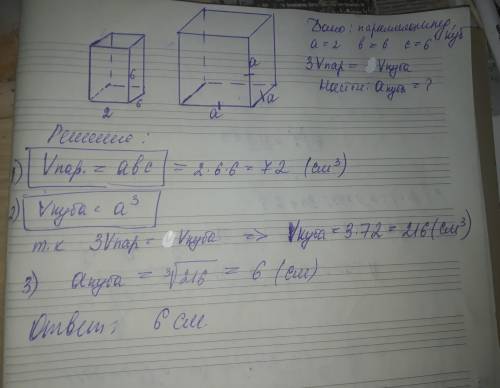 Дано: параллелепипед, куб
a = 2 b = 6 c = 6
3Vпар = Vкуба
Найти: aкуба = ?
6
6
2
a
a
a
Решение:
1) Vпар. = abc = 2·6·6 = 72 (см³)
2) Vкуба = a³
т.к 3Vпар = Vкуба => Vкуба = 3·72 = 216 (см³)
3) aкуба = ³√216 = 6 (см)
Ответ: 6 см